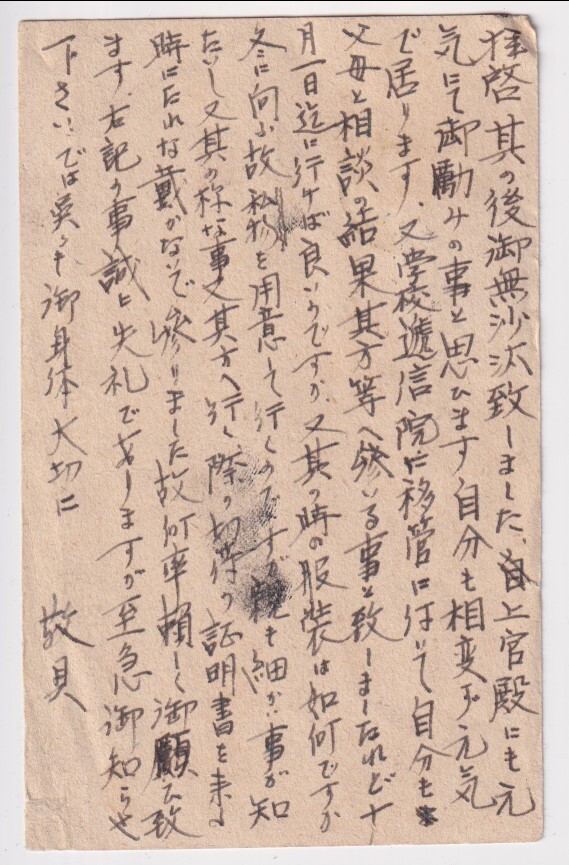 拝啓 其の後御無沙汰致しました、上官殿にも元
気にて御励みの事と思ひます 自分も相変ず元気
で居ります、又学校逓信院に移管に付いて自分も
父母と相談の結果其方等へ参いる事と致しましたれど十
月一日迄に行けば良いのですか 又其の時の服装は如何ですか
冬に向ふ故私物を用意して行くのですか 細かい事が知
たいし又其の様な事又其方へ行く際の切符の証明書を来る
時にたれな戴かないで参りました故何卒頼しく御願ひ致
ます、右記の事誠に失礼でありますが至急御知らせ
下さい、では呉々も御身体大切に 敬具